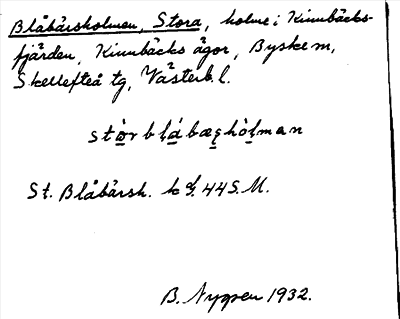 Blåbärsholmen, Stora, holme i Kinnbäcks-
fjärden, Kinnbäcks ägor, Byske sn,
Skellefteå tg, Västerb. l.
stòrblábæʂhòlman
St. Blåbärsh. k bl. 44 S.M.
B. Nygren 1932.